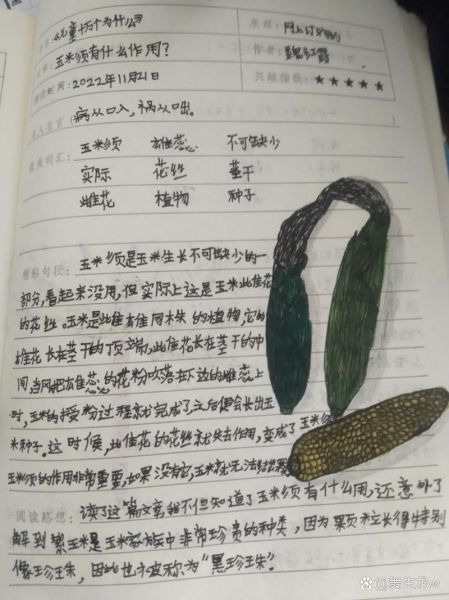 儿童十万个为什么
来源：网上订购的
玉米须有什么作用？
作者：
时间：2022年11月21日
兴趣指数：★★★★★
名人名言：病从口入，祸从口出。
好美词汇：玉米须 雄蕊 不可缺少
实际 花丝 茎干
雌花 植物 种子
精彩句段：玉米须是玉米生长不可缺少的一
部分，看起来没用，但实际上这是玉米雌花
的花丝。玉米是雌雄同株的植物，它的
雄花长在茎干的顶端，雌花长在茎干的中
间，当风把雄蕊的花粉吹落在下边的雌蕊上
时，玉米的授粉过程就完成了，之后便会长出玉
米种子。这时候，雌花的花丝就失去作用，变成了玉米须
玉米须的作用非常重要，如果没有它，玉米就无法结
阅读感想：读了这篇文章，我不但知道了玉米须有什么用，还意外了
解到黑玉米是玉米家族中非常珍贵的种类，因为颗米立长得特别
像珍珠，因此也才被称为“黑珍珠”。
@舞生龙w